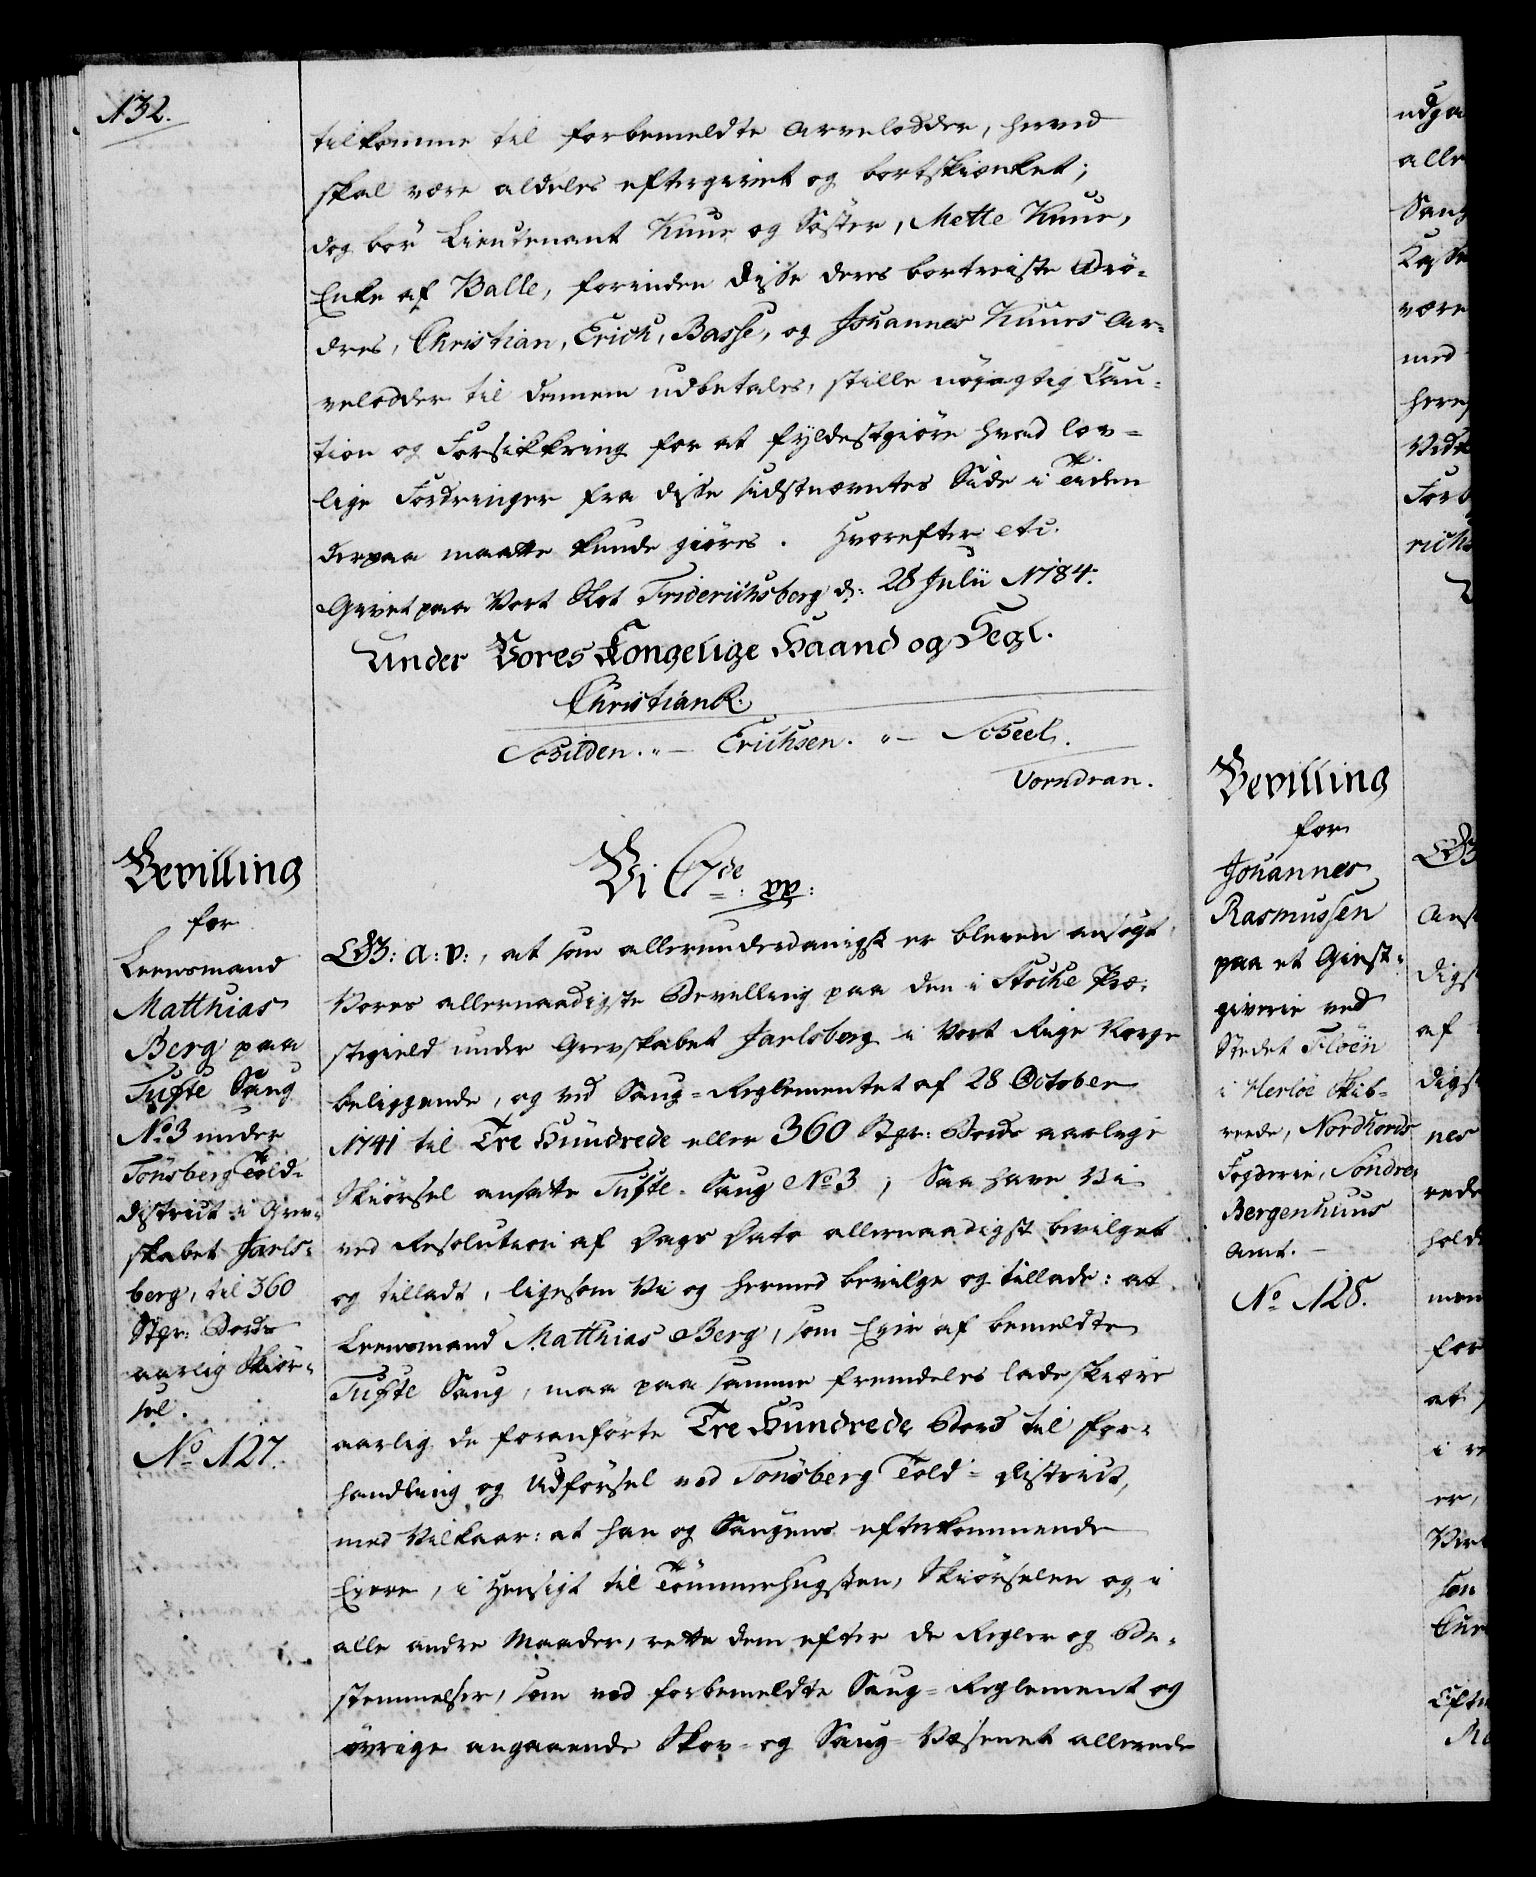 132.
tilkomme til forbemeldte Arvelodder, herved
skal være aldeles eftergivet og bortskienket;
dog bör Lieutenant Kuur og Söster, Mette Kuur,
Enke af Balle, forinden disse deres bortreiste Brö-
dres, Christian, Erich, Basse, og Johannes Kuurs Ar-
velodder til dennem udbetales, stille nöjagtig Cau-
tion og Forsikkring for at fyldestgiöre hvad lov-
lige Fordringer fra disse sidstnævntes Side i Tiden
derpaa maatte kunde giöres. Hvorefter etc.
Givet paa Vort Slot Friderichsberg d: 28 Julii 1784.
Under Vores Kongelige Haand og Segl.
Christian R.
Schilden. " — Erichsen. " — Scheel.
Vorndran.
Bevilling
for
Leensmand
Matthias
Berg paa
Tufte Saug
No 3 under
Tönsberg Told-
district i Grev-
skabet Jarls-
berg, til 360
Stpr: Bords
aarlig Skiör-
sel.
No 127.
Vi C 7de: pp:
G: A: V:, at som allerunderdanigst er bleven ansögt
Vores allernaadigste Bevilling paa den i Stocke Præ-
stegield under Grevskabet Jarlsberg i Vort Rige Norge
beliggende, og ved Saug-Reglementet af 28 October
1741 til Tre Hundrede eller 360 Stpr: Bords aarlige
Skiörsel ansatte Tufte-Saug No 3; Saa have Vi
ved Resolution af Dags Dato allernaadigst bevilget
og tilladt, ligesom Vi og hermed bevilge og tillade: at
Leensmand Matthias Berg, som Eier af bemeldte
Tufte Saug, maa paa samme fremdeles lade skiære
aarlig de foranförte Tre Hundrede Bord til For-
handling og Udförsel ved Tönsberg Told-District,
med Vilkaar: at han og Saugens efterkommende
Eiere, i Hensigt til Tömmerhugsten, Skiörselen og i
alle andre Maader, rette dem efter de Regler og Be-
stemmelser, som ved forbemeldte Saug-Reglement og
övrige angaaende Skov- og Saug-Væsenet allerede
Bevilling
for
Johannes
Rasmussen
paa et Giest-
giverie ved
Stedet Flöen
i Herlöe Skib-
reede, Nordhords
Fogderie, Söndre
Bergenhuus
Amt. —
No 128.
udga
alle
Saug
være
med